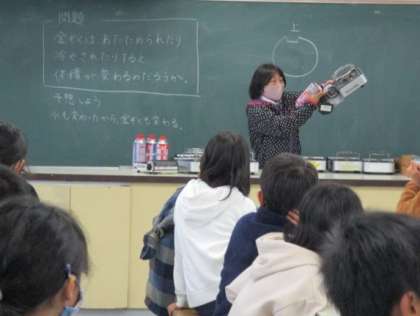 問題
金ぞくは あたためられたり
冷やされたりすると
体積が変わるのだろうか。
予想しよう
水も変わったから、金ぞくも変わる。
上